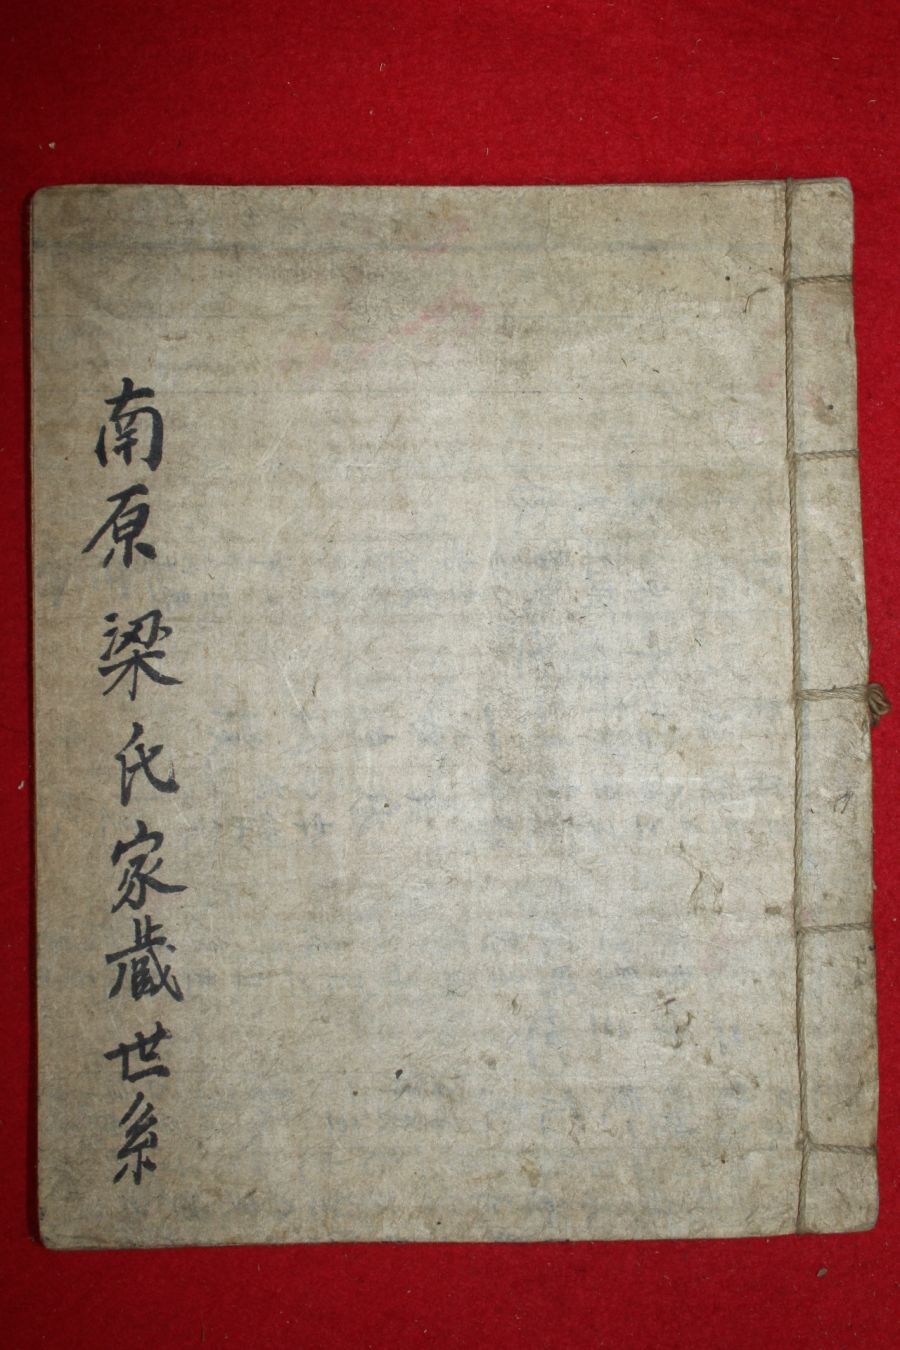 南原梁氏家蔵世系